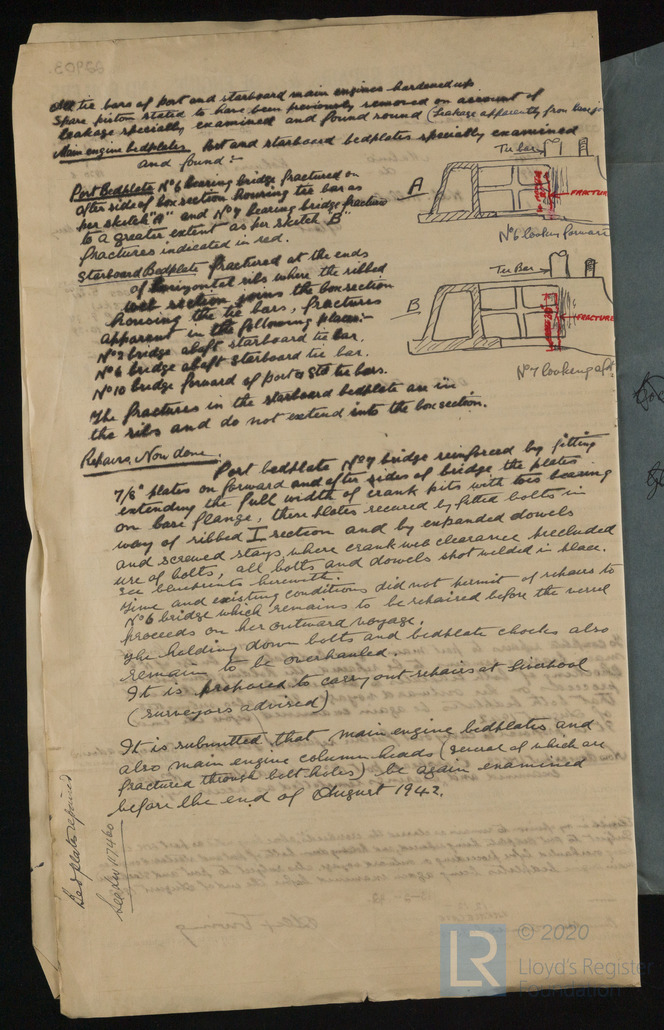 All tie bars of port and starboard main engines hardened up
Spare piston stated to have been previously removed on account of
leakage specially examined and found sound (Leakage apparently from
Main engine bedplates Port and starboard bedplates specially examined
and found:-
Port Bedplate No 6 bearing bridge fractured on
after side of box section housing tie bar as
per sketch "A" and No 7 bearing bridge fracture
to a greater extent as per sketch "B"
fractures indicated in red.
Tie bar
A
FRACTURE
No 6 looking forward
Starboard Bedplate fractured at the ends
of horizontal ribs where the ribbed
section joins the box section
housing the tie bars, fractures
apparent in the following places:-
No 2 bridge abaft starboard tie bar.
No 6 bridge abaft starboard tie bar.
No 10 bridge forward of port & stb tie bars.
Tie Bar
B
FRACTURE
No 7 looking aft
The fractures in the starboard bedplate are in
the ribs and do not extend into the box section.
Repairs Now done.
Port bedplate No 7 bridge reinforced by fitting
7/8" plates on forward and after sides of bridge the plates
extending the full width of crank pits with toes bearing
on base flange, these plates secured by fitted bolts in
way of ribbed I section and by expanded dowels
and screwed stays where crank web clearance precluded
use of bolts, all bolts and dowels spot welded in place.
See blueprints herewith.
Time and existing conditions did not permit of repairs to
No 6 bridge which remains to be repaired before the vessel
proceeds on her outward voyage.
The holding down bolts and bedplate chocks also
remain to be overhauled.
It is proposed to carry out repairs at Liverpool
(surveyors advised)
It is submitted that main engine bedplates and
also main engine column heads (several of which are
fractured through bolt holes) be again examined
before the end of August 1942.
Bedplate repaired
117460
LR
© 2020
Lloyd's Register
Foundation